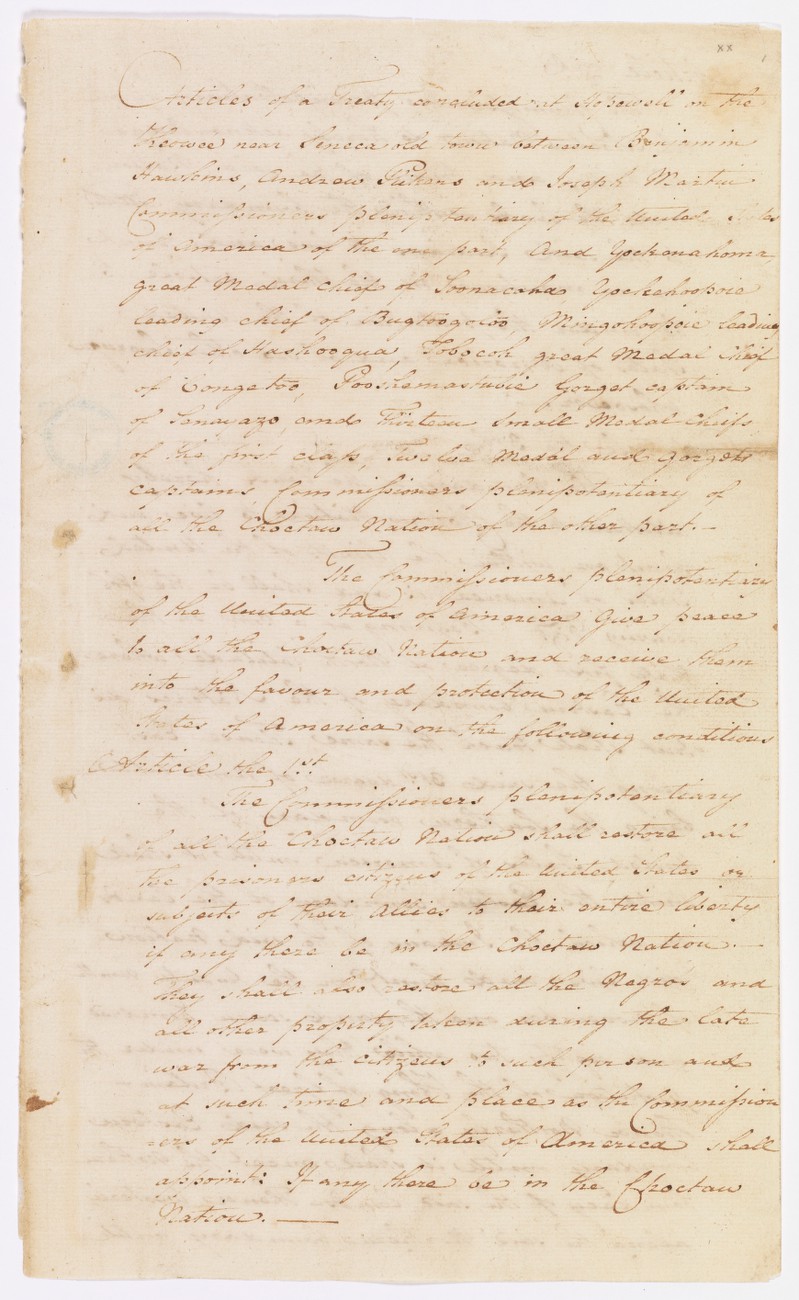 xx
Articles of a Treaty concluded at Hopewell on the
Keowee near Seneca old town between Benjamin
Hawkins, Andrew Pickens and Joseph Martin
Commissioners plenipotentiary of the United States
of America of the one part, And Yockonahoma,
great Medal Chief of Soonacoha, Yockehoopoie
leading chief of Bugtoogoloo, Mingohoopoie leading
chief of Hashooqua, Tobocoh great Medal Chief
of Congetoo, Pooshemastubie Gorget captain
of Senayazo, and Thirteen Small Medal Chiefs
of the first class, Twelve Medal and gorget
captains, Commissioners plenipotentiary of
all the Choctaw Nation of the other part.—
The Commissioners plenipotentiary
of the United States of America Give peace
to all the Choctaw Nation, and receive them
into the favour and protection of the United
States of America on the following conditions
Article the 1st.
The Commissioners plenipotentiary
of all the Choctaw Nation shall restore all
the prisoners citizens of the United States or
subjects of their Allies to their entire liberty
if any there be in the Choctaw Nation.—
They shall also restore all the Negros and
all other property taken during the late
war from the citizens to such person and
at such time and place as the Commission
ers of the United States of America shall
appoint: If any there be in the Choctaw
Nation.—